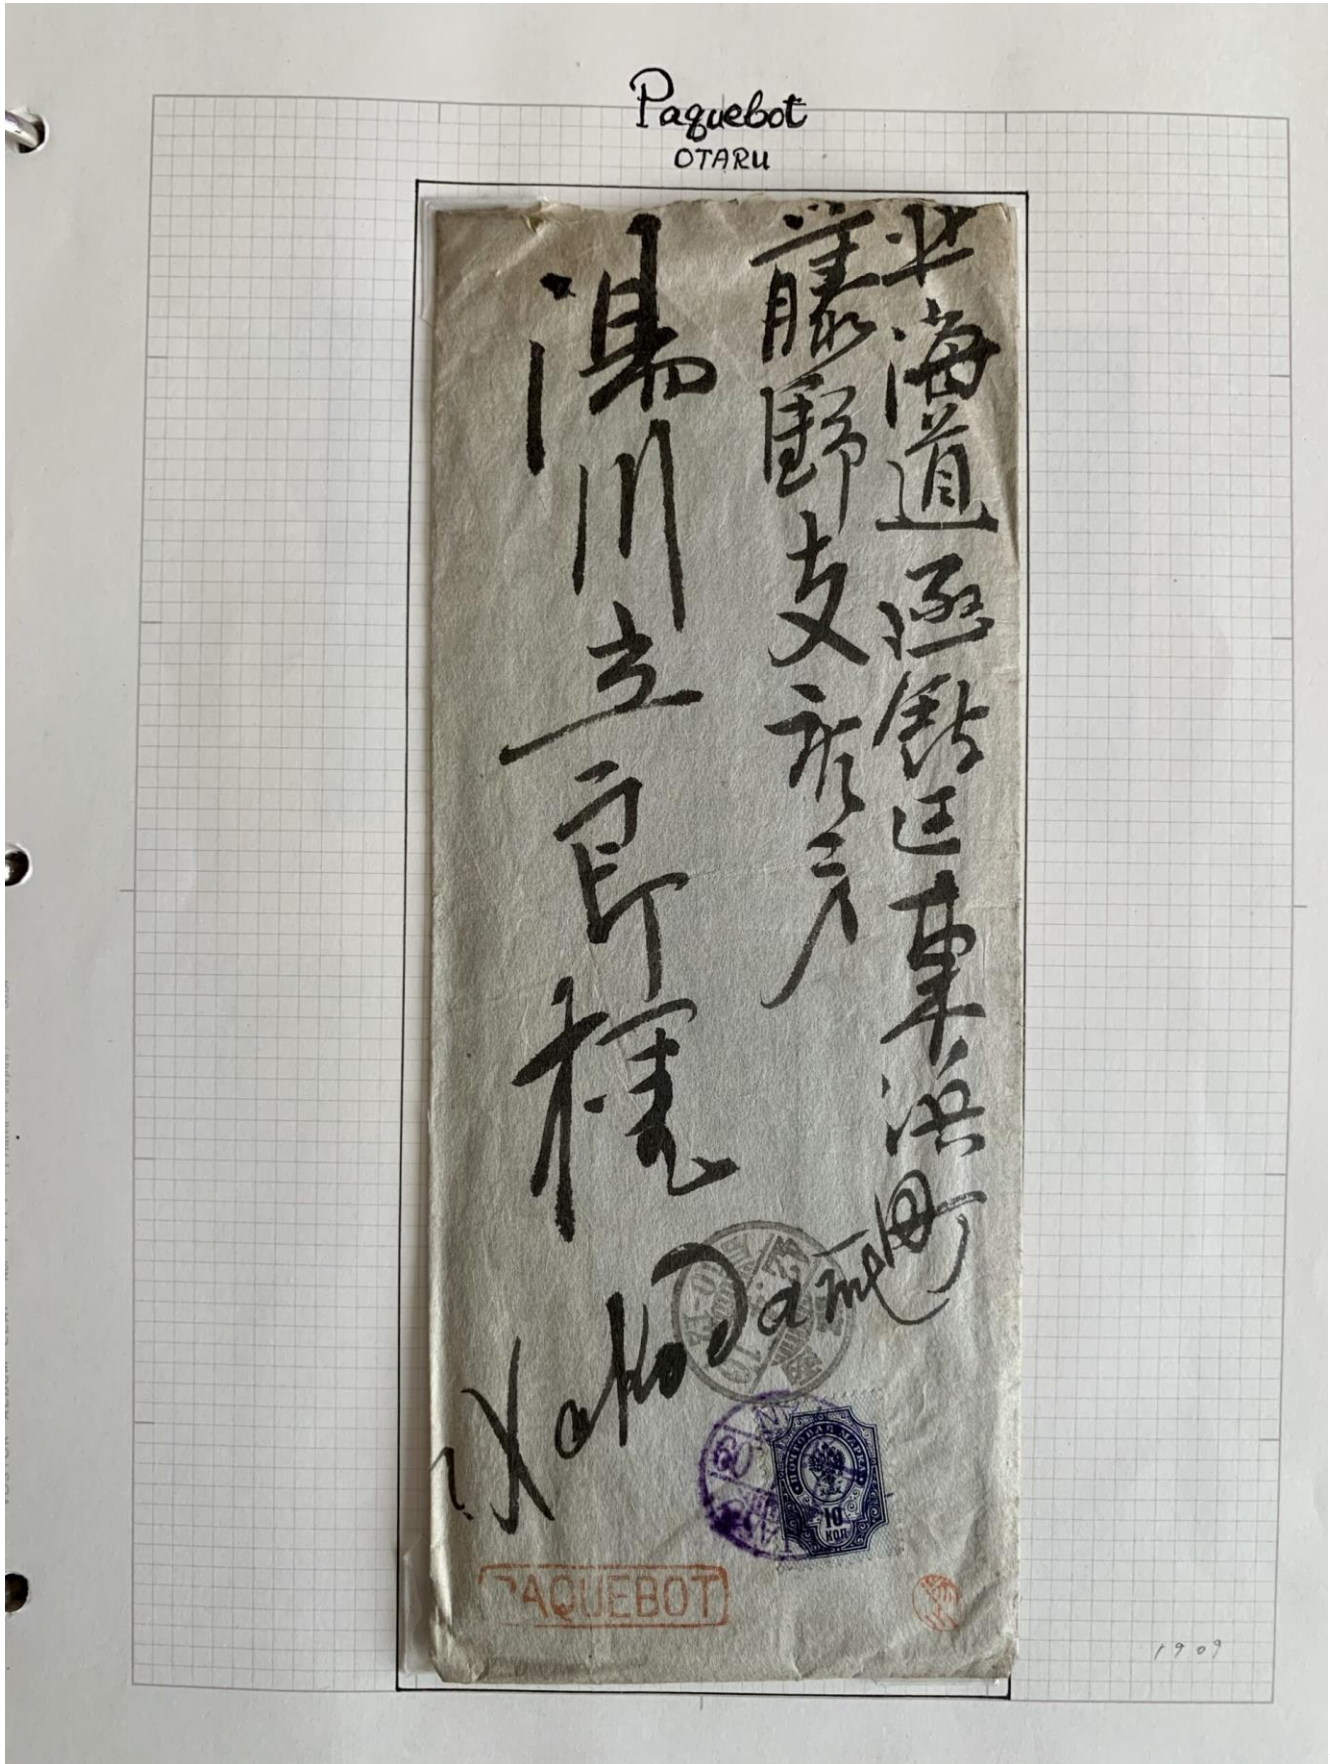 Paquebot
OTARU
北海道函館区東浜町
藤野支店ニテ
湯川立郎様
ПОЧТОВАЯ МАРКА
10
КОП
PAQUEBOT
1909